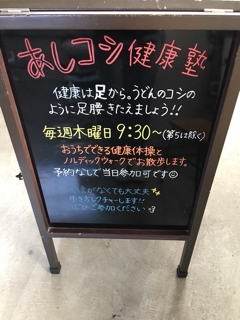 あしコシ健康塾
健康は足から。うどんのコシの
ように足腰きたえましょう!!
毎週木曜日 9:30~(第5は除く)
おうちでできる健康体操と
ノルディックウォークでお散歩します。
予約なしで当日参加可です☺
がなくても大丈夫
レクチャーします!!
ご参加ください